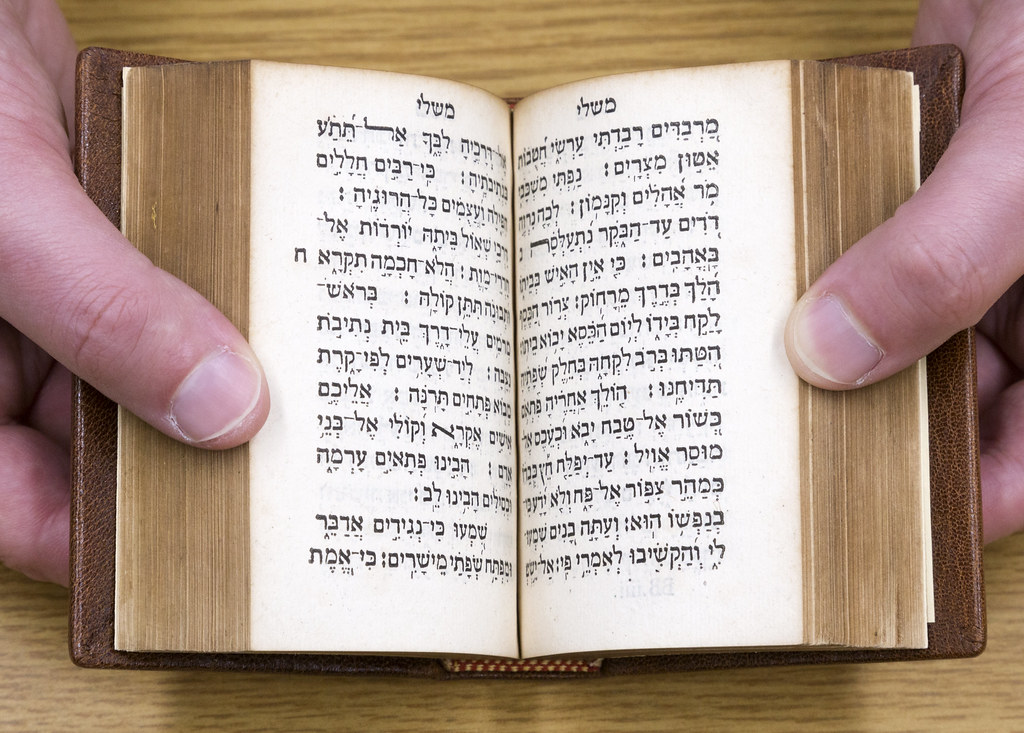 משלי
מַרְבַדִּים רָבַדְתִּי עַרְשִׂי חֲטֻבוֹת
אֵטוּן מִצְרָיִם: נַפְתִּי מִשְׁכָּבִי
מֹר אֲהָלִים וְקִנָּמוֹן: לְכָה נִרְוֶה
דֹדִים עַד־הַבֹּקֶר נִתְעַלְּסָה
בָּאֳהָבִים: כִּי אֵין הָאִישׁ בְּבֵיתוֹ
הָלַךְ בְּדֶרֶךְ מֵרָחוֹק: צְרוֹר הַכֶּסֶף
לָקַח בְּיָדוֹ לְיוֹם הַכֵּסֶא יָבוֹא בֵיתוֹ
הִטַּתּוּ בְּרֹב לִקְחָהּ בְּחֵלֶק שְׂפָתֶיהָ
תַּדִּיחֶנּוּ: הוֹלֵךְ אַחֲרֶיהָ פִּתְאֹם
כְּשׁוֹר אֶל־טֶבַח יָבֹא וּכְעֶכֶס אֶל־
מוּסַר אֱוִיל: עַד־יְפַלַּח חֵץ כְּבֵדוֹ
כְּמַהֵר צִפּוֹר אֶל־פָּח וְלֹא יָדַע כִּי־
בְנַפְשׁוֹ הוּא: וְעַתָּה בָנִים שִׁמְעוּ־
לִי וְהַקְשִׁיבוּ לְאִמְרֵי פִי:
משלי
אֶל־דְּרָכֶיהָ לִבֶּךָ אַל־תֵּתַע
כִּי־רַבִּים חֲלָלִים
וַעֲצֻמִים כָּל־הֲרוּגֶיהָ:
שְׁאוֹל בֵּיתָהּ יוֹרְדוֹת אֶל־
חַדְרֵי־מָוֶת: הֲלֹא־חָכְמָה תִקְרָא ח
וּתְבוּנָה תִּתֵּן קוֹלָהּ: בְּרֹאשׁ־
מְרֹמִים עֲלֵי־דָרֶךְ בֵּית נְתִיבֹת
נִצָּבָה: לְיַד־שְׁעָרִים לְפִי־קָרֶת
מְבוֹא פְתָחִים תָּרֹנָּה: אֲלֵיכֶם
אִישִׁים אֶקְרָא וְקוֹלִי אֶל־בְּנֵי
אָדָם: הָבִינוּ פְתָאִים עָרְמָה
וּכְסִילִים הָבִינוּ לֵב:
שִׁמְעוּ כִּי־נְגִידִים אֲדַבֵּר
וּמִפְתַּח שְׂפָתַי מֵישָׁרִים: כִּי־אֱמֶת